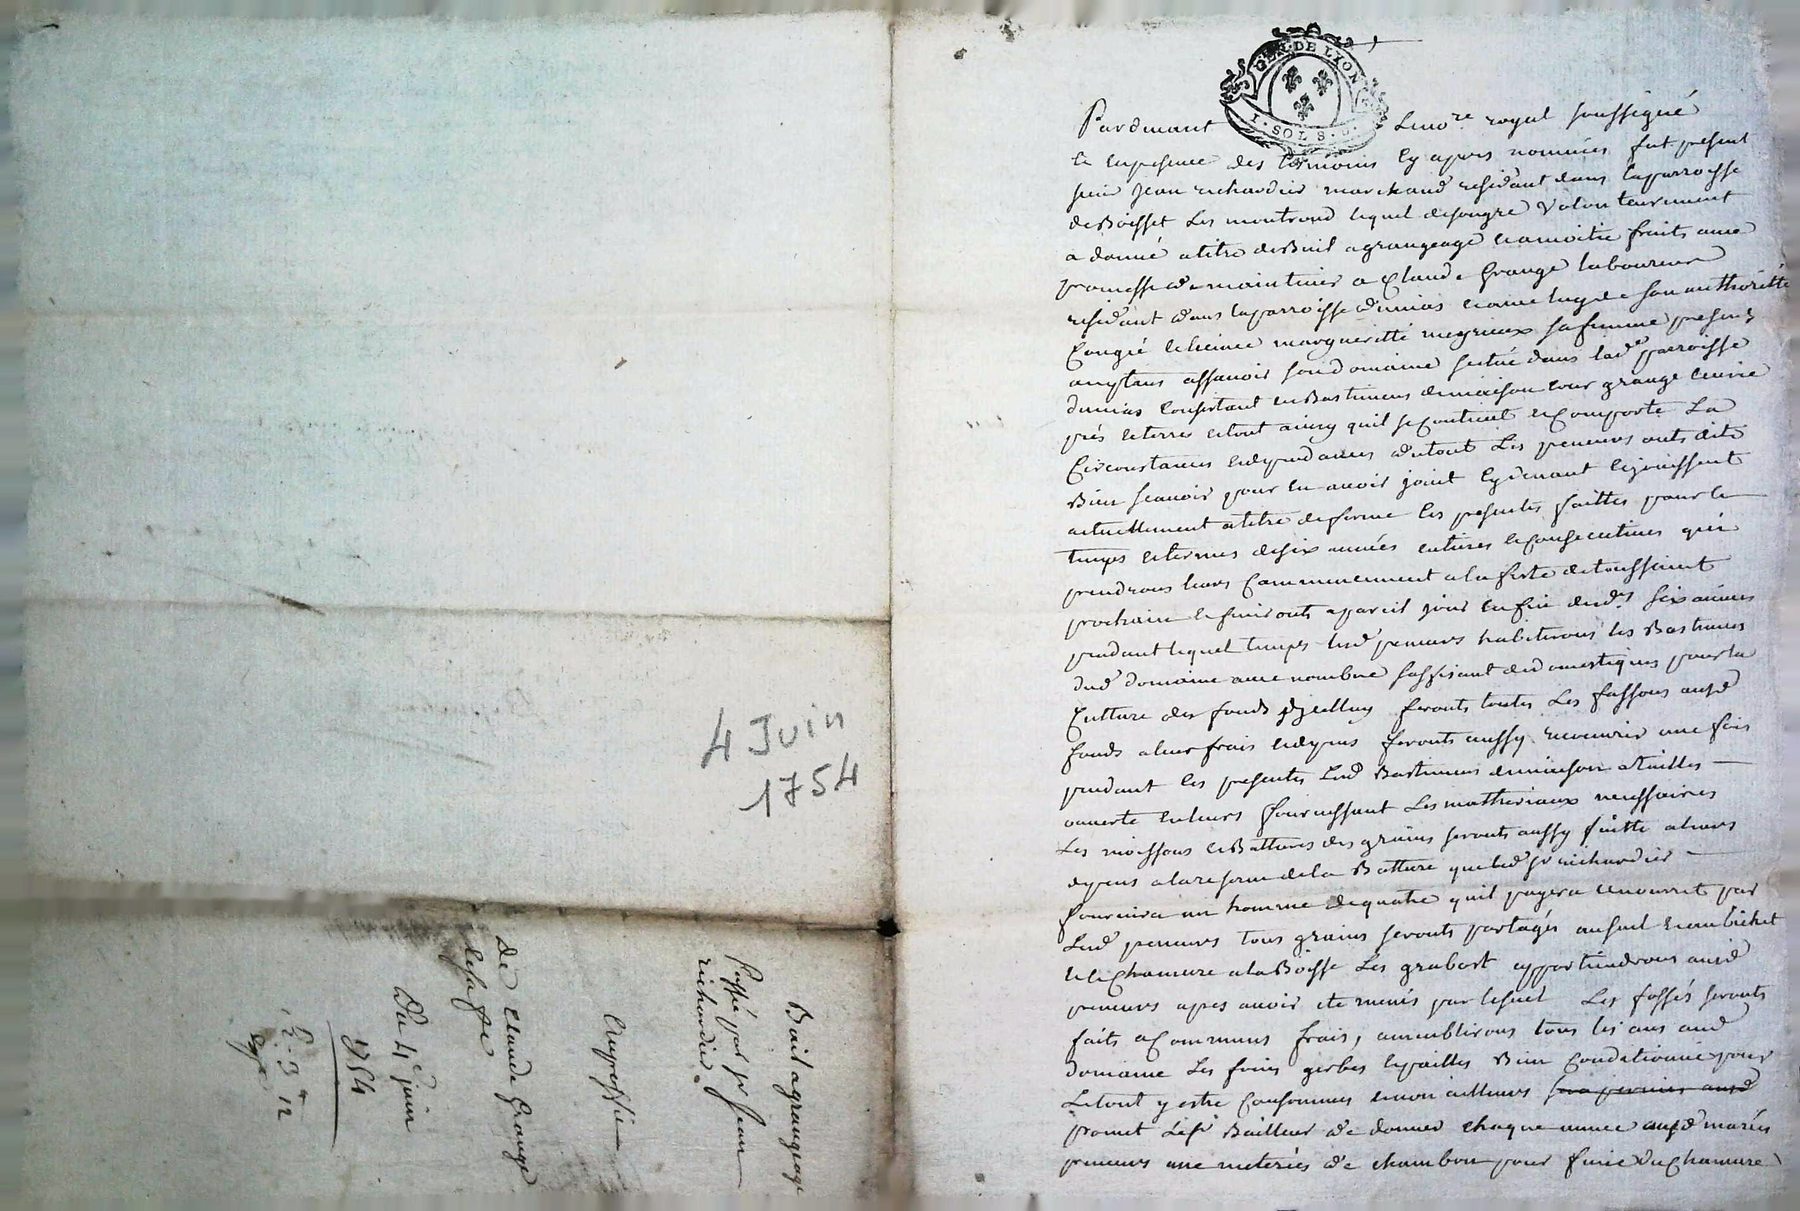 4 Juin
1754
Bail a grangeage
Passé par sr Jean
richardier
Au proffit
De Claude Grange
et sa fe
Du 4e juin
1754
GEN. DE LYON
I. SOLS. 
Pardevant Le no.re royal soussigné
et en presence des tesmoins cy apres nommés fut present
sieur Jean richardier marchand residant dans la parroisse
de Boisset Les montrond lequel de son gré volontairement
a donné a titre de Bail a grangeage et a moitié fruits avec
promesse de maintenir a Claude Grange laboureur
residant dans la parroisse d'unias et avec luy de son authorité
Congié et licence margueritte sa femme presents
acceptans assavoir son domaine scitué dans lad.e parroisse
dunias Consistant en Bastiments de maison cour grange écurie
prés et terres et tout ainsy quil se Contient et Comporte La
Circonstances et dependances du tout Les preneurs onts dits
Bien scavoir pour en avoir joint cydevant et jouissent
actuellement a titre de ferme les presentes faittes pour le
temps et termes de six années entieres et Consecutives qui
prendrons leurs Commencement a la feste de toussaint
prochain et finironts a pareil jour en fin desd.s six années
pendant lequel temps lesd preneurs habiterons les Bastiments
dud domaine avec nombre suffisant de domestiques pour la
Culture des fonds dycelluy feronts toutes Les fassons ausd
fonds a leur frais et depens feronts aussy recouvrir une fois
pendant les presentes Lesd Bastiments de maison a tuilles
ouverte en leurs fournissant Les matheriaux necessaires
Les moissons et Battures des grains seronts aussy faitte a leurs
depens a la reserve de la Batture que led sr richardier
fournira un homme de quatre quil payera et nourrit par
Lesd preneurs tous grains seronts partagés au sueil et au bichet
et le Chanvre a la Boisse Les grabort appartiendrons ausd
preneurs apres avoir ete menés par Les fossés seronts
faits a Communs frais, ameublirons tous les ans aud
domaine Les foins gerbes et pailles Bien Conditionné pour
Le tout y estre Consommés et non ailleurs
promet Led sr Bailleur de donner chaque année ausd mariés
preneurs une de chambon pour faire du Chanvre